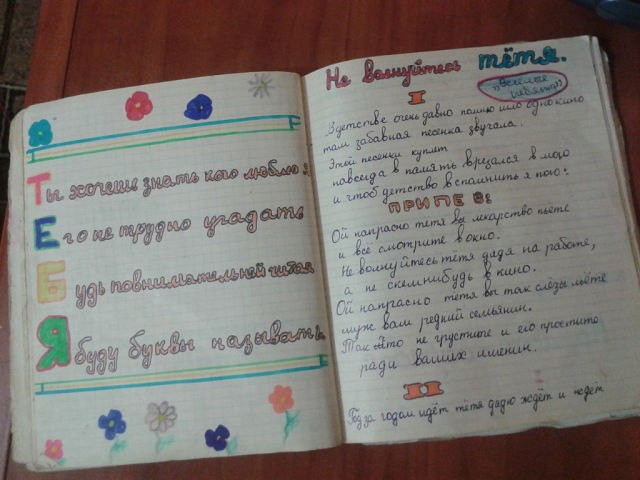 Ты хочешь знать кого люблю я
Его не трудно угадать
Будь повнимательней читая
Я буду буквы называть
Не волнуйтесь тётя.
"Весёлые ребята"
I
В детстве очень давно помню шло одно кино
там забавная песенка звучала.
Этой песенки куплет
навсегда в память врезался в мою
и чтоб детство вспомнить я пою:
ПРИПЕВ:
Ой напрасно тётя вы лекарство пьёте
и всё смотрите в окно.
Не волнуйтесь тётя дядя на работе,
а не с кем нибудь в кино.
Ой напрасно тётя вы так слёзы льёте
муж вам редкий семьянин.
Так что не грустите и его простите
ради ваших именин.
II
Год за годом идёт тётя дядю ждёт и ждёт